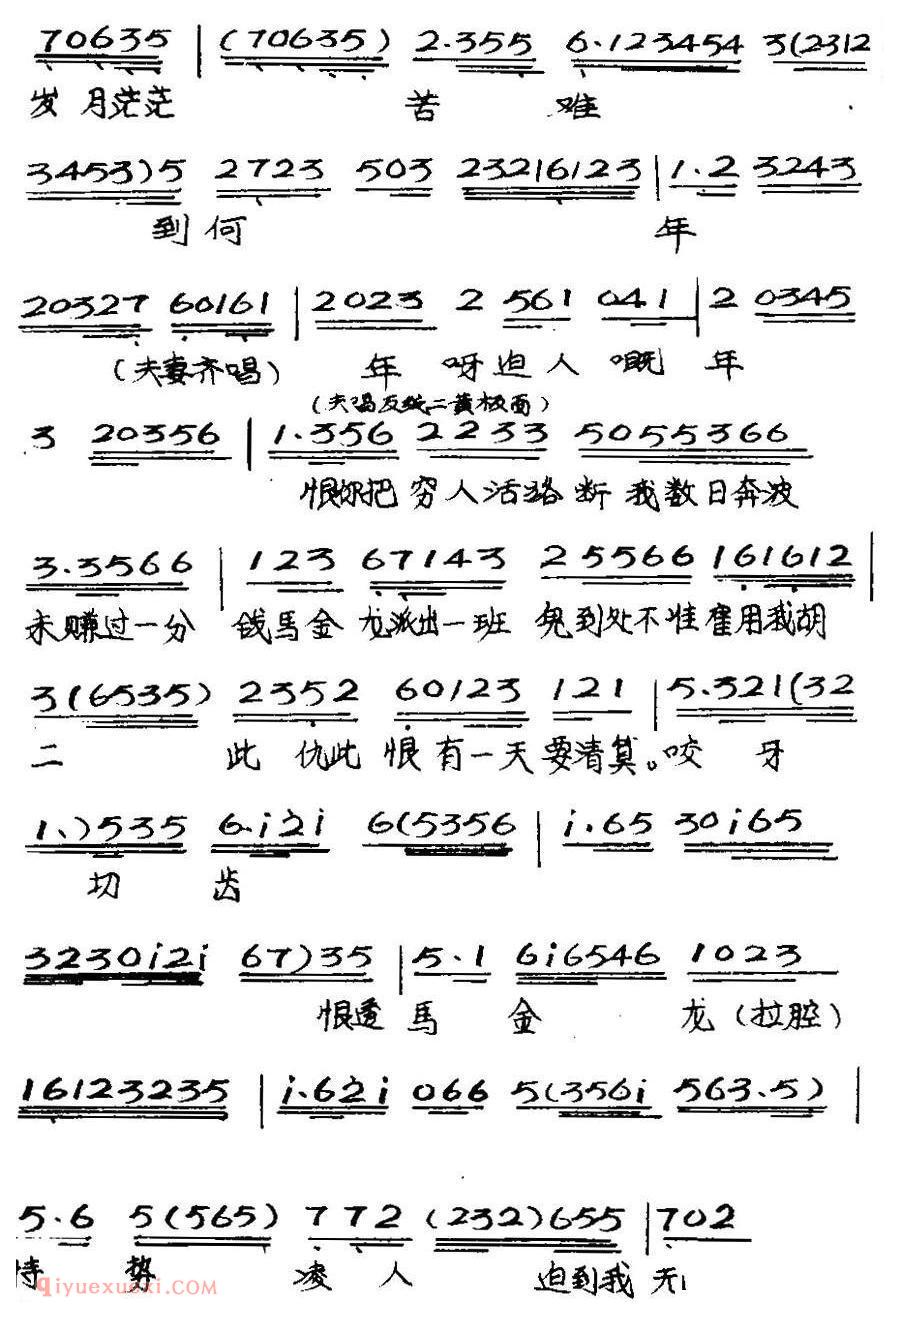 70635 | (70635) 2·355 6·123454 3(2312
岁月茫茫 苦 难
3453)5 2723 503 23216123 | 1·2 3243
到何 年
20327 60161 | 2023 2 561 041 | 2 0345
(夫妻齐唱) 年 呀迫人 嘅 年
(夫唱反线二黄板面)
3 20356 | 1·356 2233 5055366
恨你把 穷人活路 断 我数日奔波
3·3566 | 123 67143 25566 161612 |
未赚过一分 钱馬金 龙派出一班 鬼到处不准雇用我胡
3(6535) 2352 60123 121 | 5·321(32
二 此 仇此 恨有一天要清算。咬 牙
1、)535 6·i2i 6(5356 | i·65 30i65
切 齿
3230i2i 67)35 | 5·1 6i6546 1023
恨透 馬 金 龙(拉腔)
16123235 | i·62i 066 5(356i 563·5) |
5·6 5(565) 772 (232)655 | 702
恃 势 凌 人 迫到我 无
qiyuexuexi.com